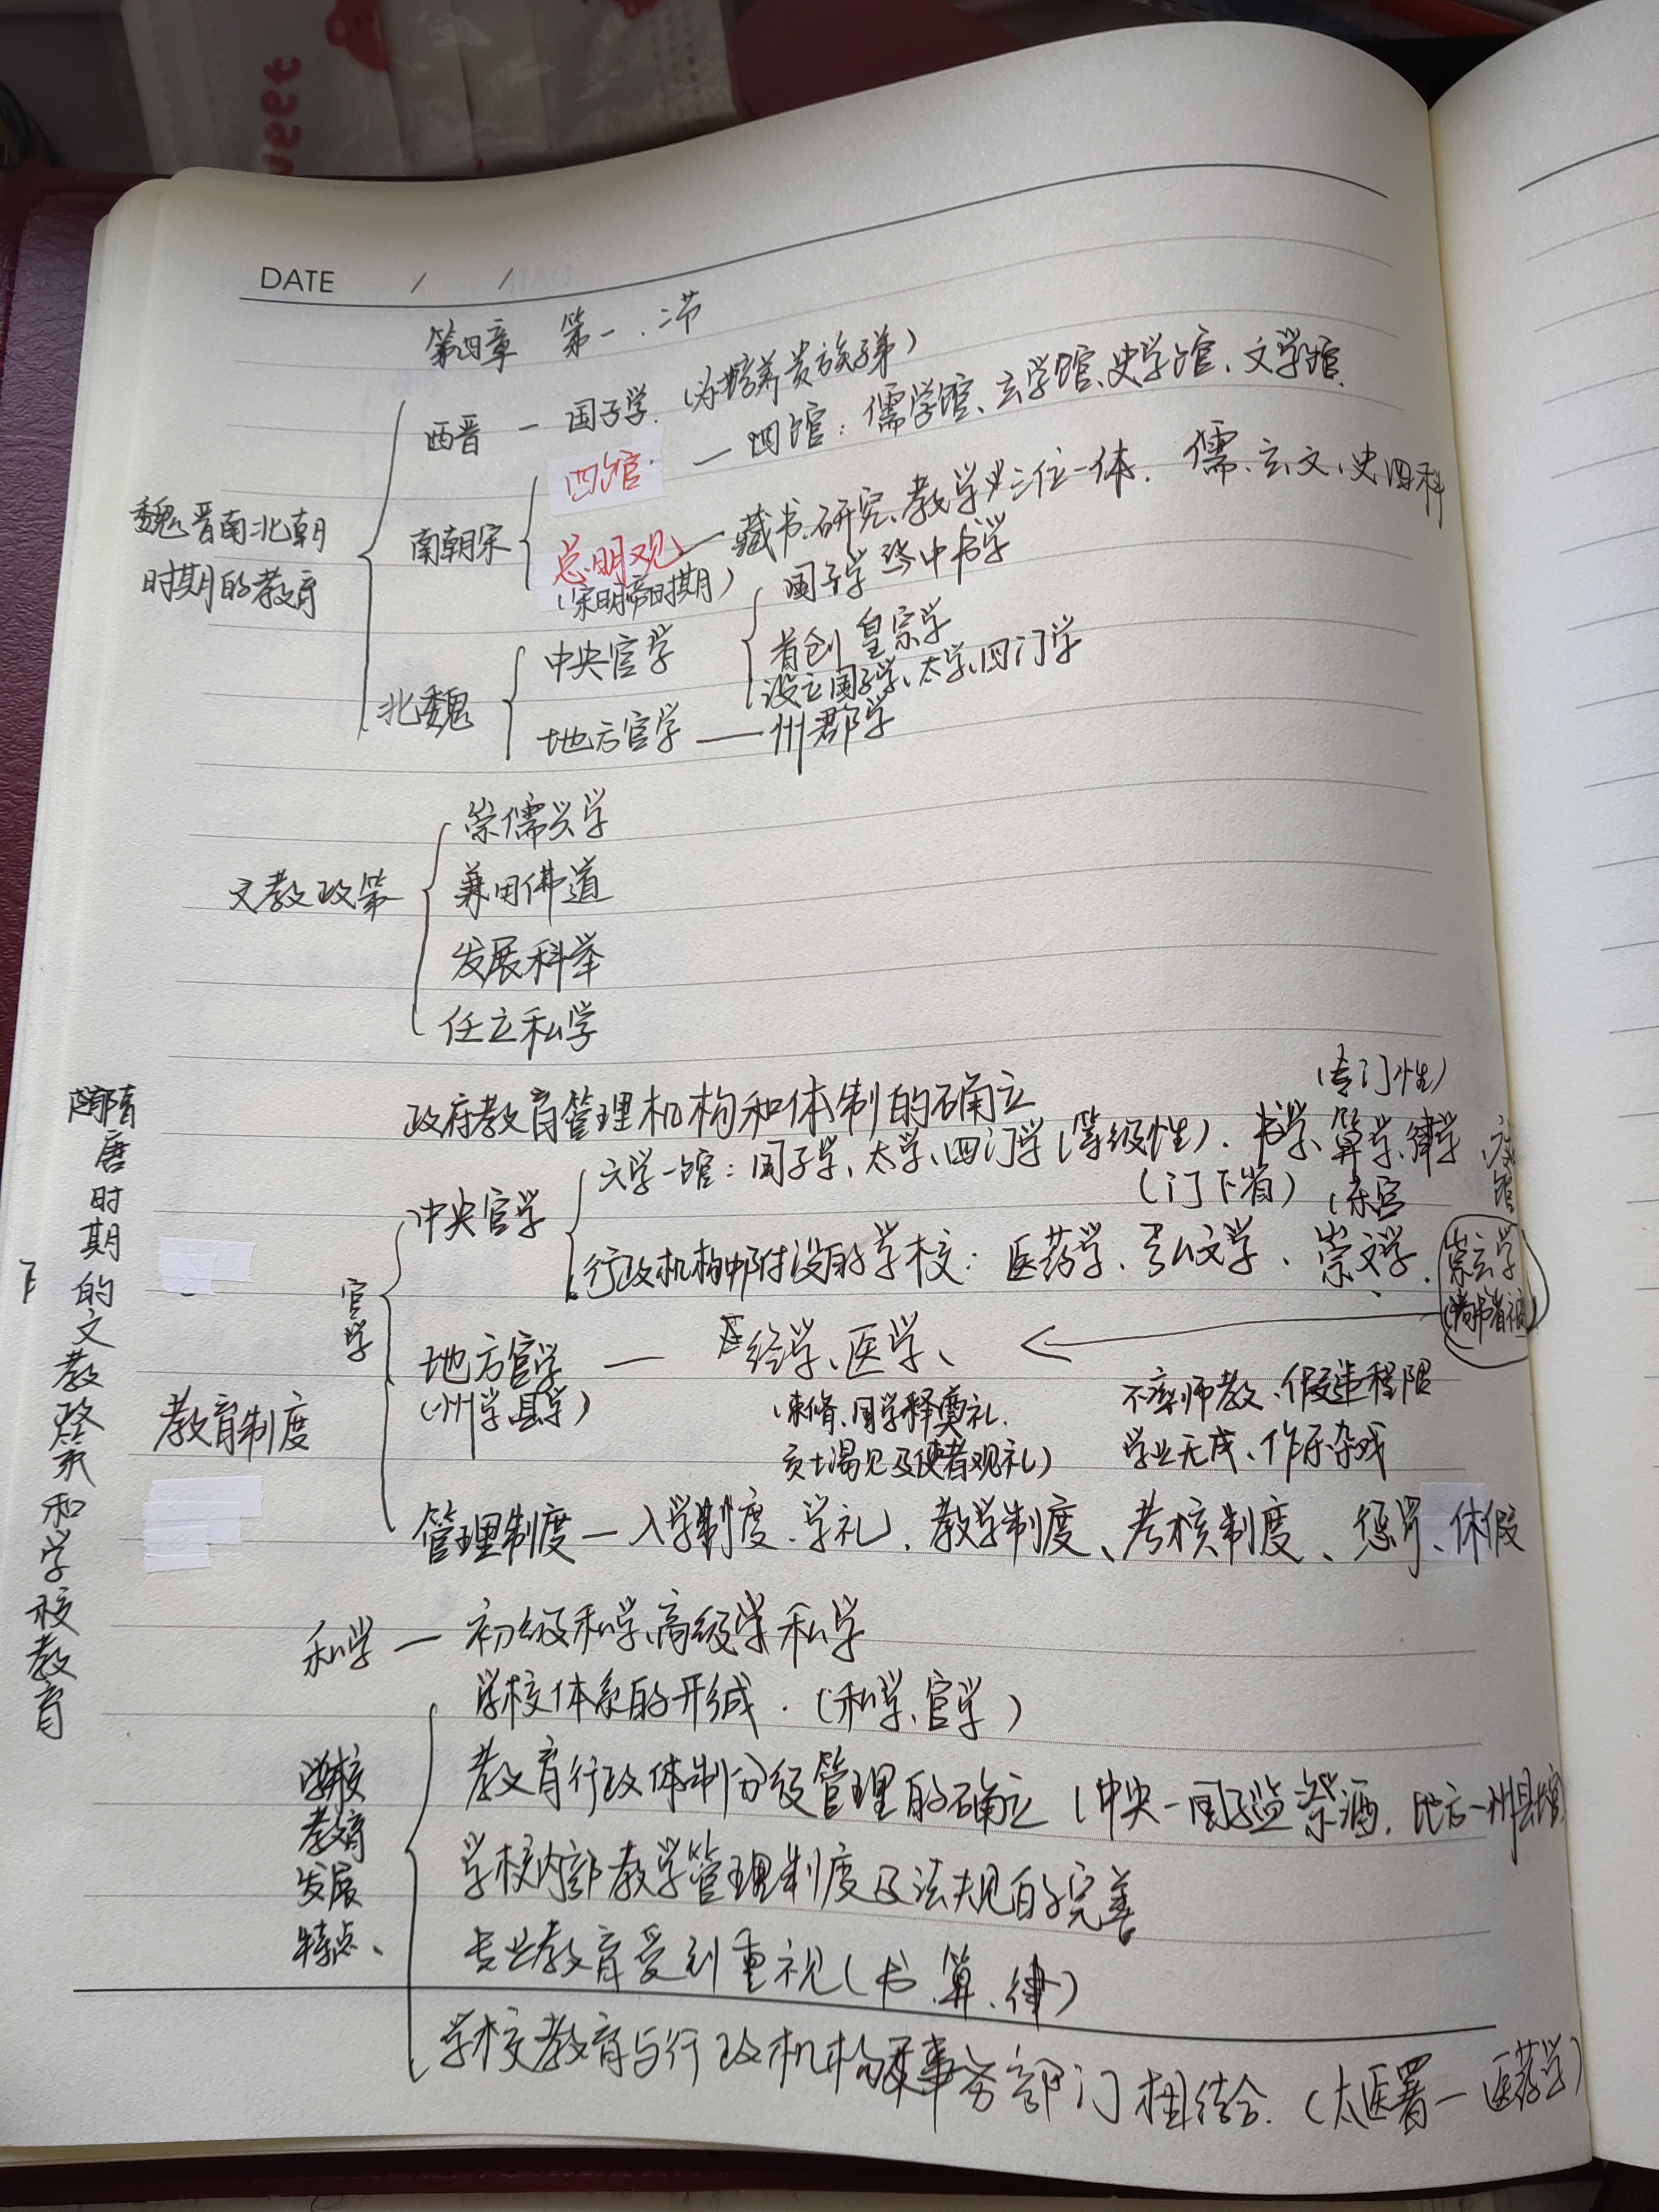 weet
DATE / /
第四章 第一.二节
魏晋南北朝
时期的教育
西晋 — 国子学.(为培养贵族子弟)
南朝宋
四馆. — 四馆:儒学馆、玄学馆、史学馆、文学馆.
总明观 — 藏书、研究、教学三位一体. 儒、玄、文、史四科
(宋明帝时期)
北魏
中央官学
国子学 中书学
首创 皇宗学
设立国子学、太学、四门学
地方官学 —— 州郡学
隋唐时期的文教政策和学校教育
文教政策
崇儒兴学
兼用佛道
发展科举
任立私学
教育制度
政府教育管理机构和体制的确立
官学
中央官学
(专门性)
六学一馆:国子学、太学、四门学(等级性).书学、算学、律学
(门下省) (东宫
行政机构中附设的学校:医药学、弘文学、崇文学.
崇玄学
地方官学 — 经学、医学、
(州学县学)
(束脩、国学释奠礼.
贡士谒见及使者观礼)
不率师教、假违程限
学业无成、作乐杂戏
管理制度 — 入学制度.学礼.教学制度、考核制度、惩罚、休假
私学 — 初级私学、高级学私学
学校
教育
发展
特点、
学校体系的形成.(私学、官学)
教育行政体制分级管理的确立(中央—国子监祭酒.地方—州县
学校内部教学管理制度及法规的完善
专业教育受到重视(书.算、律)
学校教育与行政机构 事务部门相结合.(太医署—医药学)